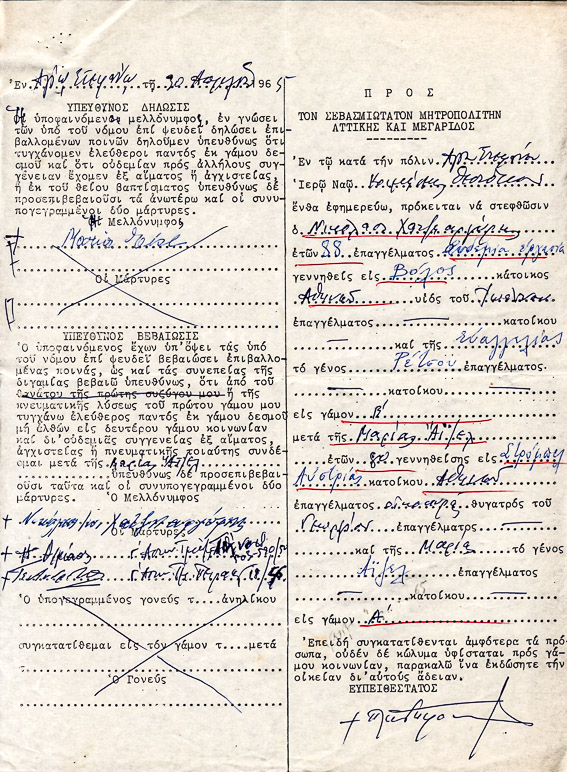 Ἐν Ἁγίῳ Στεφάνῳ τῇ 20 1965
ΥΠΕΥΘΥΝΟΣ ΔΗΛΩΣΙΣ
Ἡ ὑποφαινόμενη μελλόνυμφος, ἐν γνώσει
τῶν ὑπό τοῦ νόμου ἐπί ψευδεῖ δηλώσει ἐπι-
βαλλομένων ποινῶν δηλοῦμεν ὑπευθύνως ὅτι
τυγχάνομεν ἐλεύθεροι παντός ἐκ γάμου δε-
σμοῦ καί ὅτι οὐδεμίαν πρός ἀλλήλους συγ-
γένειαν ἔχομεν ἐξ αἵματος ἤ ἀγχιστείας,
ἤ ἐκ τοῦ θείου βαπτίσματος ὑπευθύνως δέ
προσεπιβεβαιοῦσι τά ἀνωτέρω καί οἱ συνυ-
πογεγραμμένοι δύο μάρτυρες.
Ἡ Μελλόνυμφος
Οἱ Μάρτυρες
ΥΠΕΥΘΥΝΟΣ ΒΕΒΑΙΩΣΙΣ
Ὁ ὑποφαινόμενος ἔχων ὑπ' ὄψει τάς ὑπό
τοῦ νόμου ἐπί ψευδεῖ βεβαιώσει ἐπιβαλλο-
μένας ποινάς, ὡς καί τάς συνεπείας τῆς
διγαμίας βεβαιῶ ὑπευθύνως, ὅτι ἀπό τοῦ
θανάτου τῆς πρώτης συζύγου μου ἤ τῆς
πνευματικῆς λύσεως τοῦ πρώτου γάμου μου
τυγχάνω ἐλεύθερος παντός ἐκ γάμου δεσμοῦ
μή ἀλθών εἰς δευτέρου γάμου κοινωνίαν
καί δι' οὐδεμιᾶς συγγενείας ἐξ αἵματος,
ἀγχιστείας ἤ πνευματικῆς τοιαύτης συνδέ-
ομαι μετά τῆς Μαρίας Αἴζελ
ὑπευθύνως δέ προσεπιβεβαι-
οῦσι ταῦτα καί οἱ συνυπογεγραμμένοι δύο
μάρτυρες. Ὁ Μελλόνυμφος
Οἱ Μάρτυρες
Ὁ ὑπογεγραμμένος γονεύς τ....ἀνηλίκου
συγκατατίθεμαι εἰς τόν γάμον τ...μετά
Ὁ Γονεύς
ΠΡΟΣ
ΤΟΝ ΣΕΒΑΣΜΙΩΤΑΤΟΝ ΜΗΤΡΟΠΟΛΙΤΗΝ
ΑΤΤΙΚΗΣ ΚΑΙ ΜΕΓΑΡΙΔΟΣ
Ἐν τῷ κατά τήν πόλιν
Ἱερῷ Ναῷ Κοιμήσεως Θεοτόκου
ἔνθα ἐφημερεύω, πρόκειται νά στεφθῶσιν
ὁ Νικόλαος Χατζηαργύρης
ἐτῶν 88 ἐπαγγέλματος ἐλευθερία ἐργασία
γεννηθείς εἰς Βόλος κάτοικος
Ἀθηνῶν υἱός τοῦ
ἐπαγγέλματος κατοίκου
καί τῆς Εὐαγγελίας
τό γένος Ρέτσου ἐπαγγέλματος
κατοίκου
εἰς γάμον Β'
μετά τῆς Μαρίας Αἴζελ
ἐτῶν γεννηθείσης εἰς
Αὐστρίας κατοίκου Ἀθηνῶν
ἐπαγγέλματος οἰκιακά θυγατρός τοῦ
ἐπαγγέλματος
καί τῆς Μαρίας τό γένος
Αἴζελ ἐπαγγέλματος
κατοίκου
εἰς γάμον Α'
Ἐπειδή συγκατατίθενται ἀμφότερα τά πρό-
σωπα, οὐδέν δέ κώλυμα ὑφίσταται πρός γά-
μου κοινωνίαν, παρακαλῶ ἵνα ἐκδώσητε τήν
οἰκείαν δι' αὐτούς ἄδειαν.
ΕΥΠΕΙΘΕΣΤΑΤΟΣ